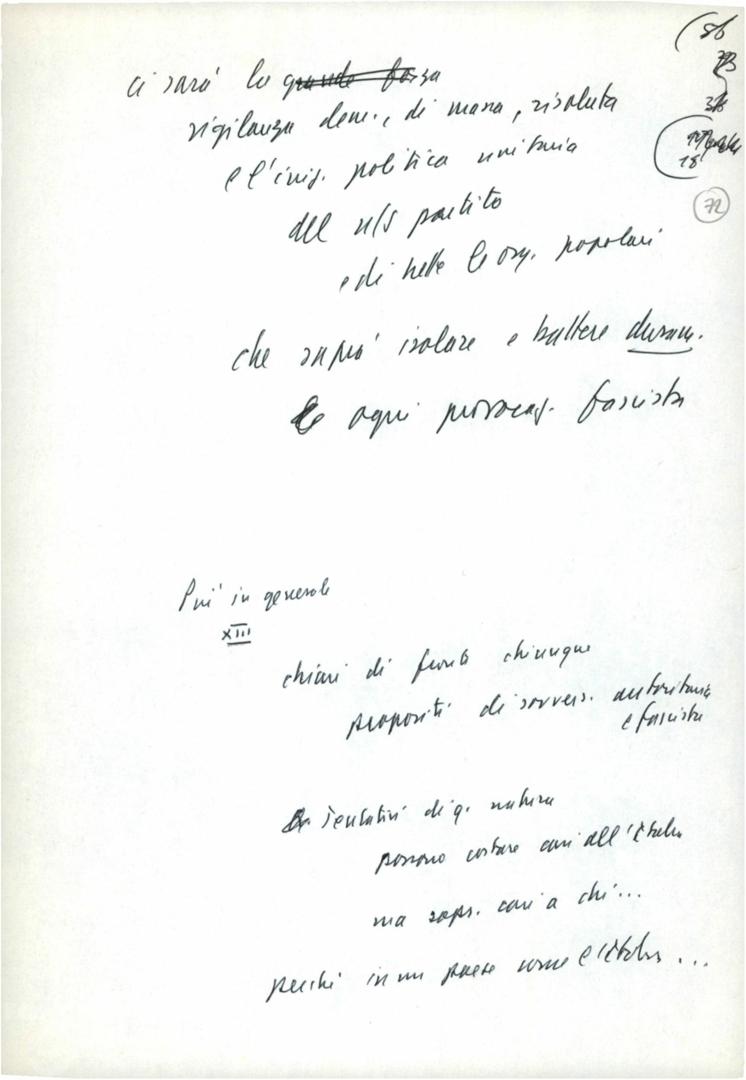 ci sarà la grande forza
vigilanza dem., di massa, risoluta
e l'iniz. politica unitaria
del n/s partito
e di tutte le org. popolari
che saprà isolare e battere duram.
ogni provocaz. fascista
72
Più in generale
XIII
chiari di fronte chiunque
propositi di sovvers. autoritaria
e fascista
tentativi di q. natura
possono costare cari all'Italia
ma sopr. cari a chi...
perché in un paese come l'Italia ...